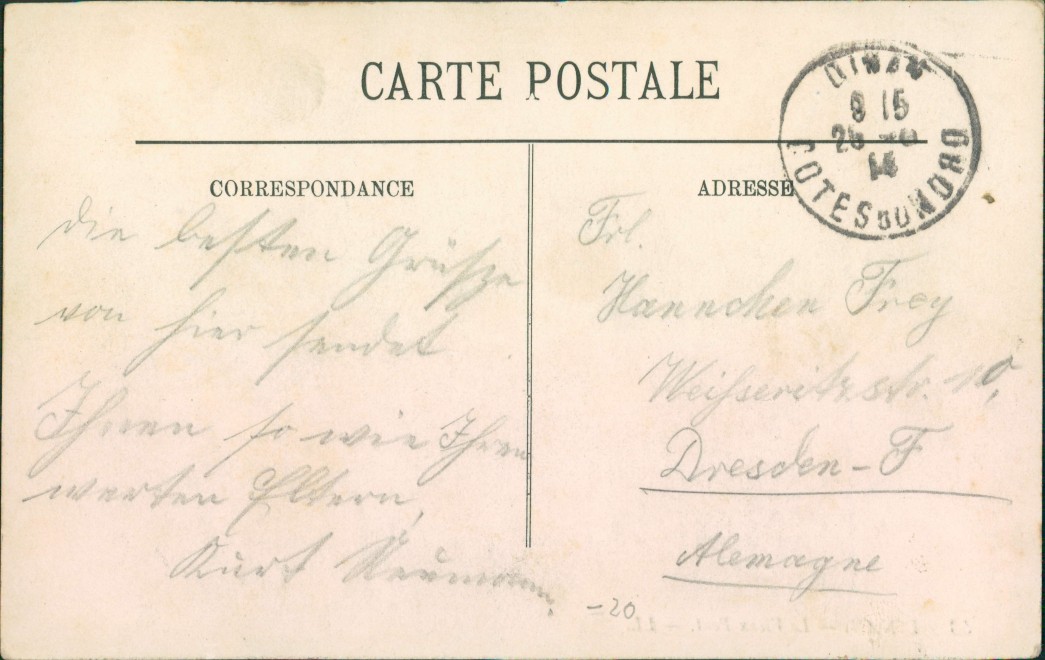 CARTE POSTALE
DINAN
8 15
25
14
COTES DU NORD
CORRESPONDANCE
ADRESSE
Die besten Grüsze
von hier sendet
Ihnen so wie Ihren
werten Eltern,
Kurt Neumann.
Frl.
Hannchen Frey
Weißeritzstr. 10,
Dresden-F
Alemagne
-20